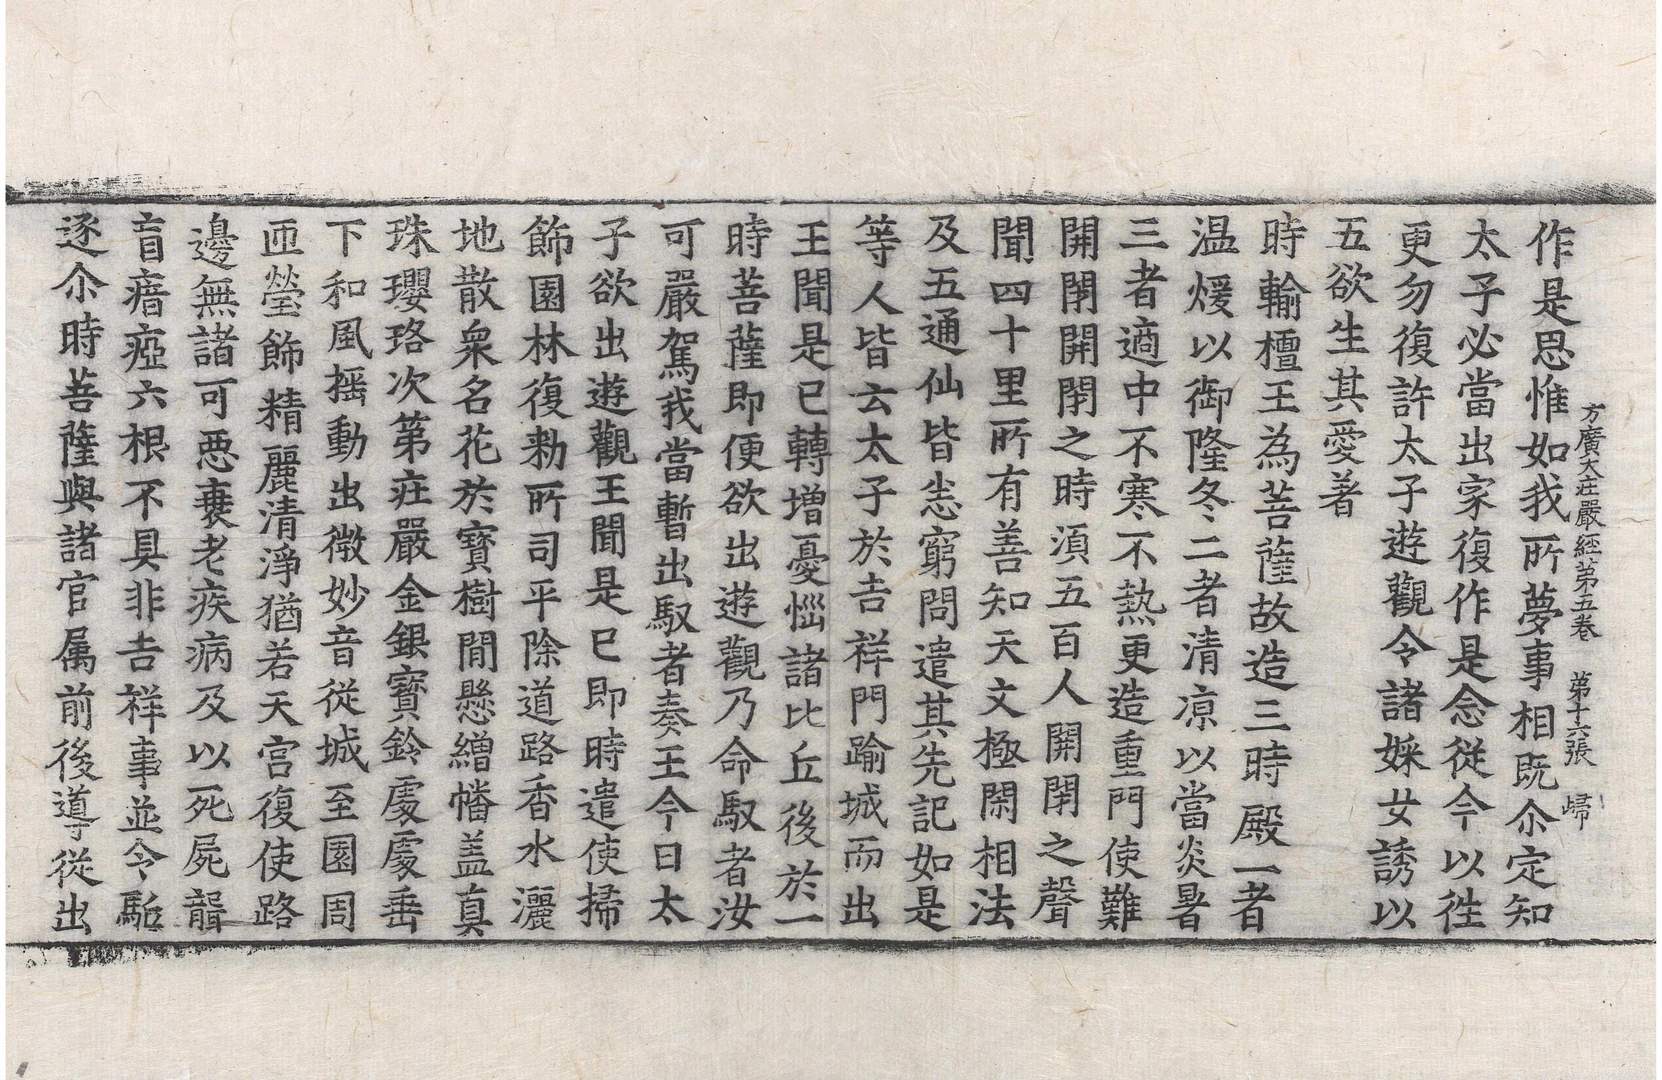 方廣大莊嚴經第五卷　第十六張　歸
作是思惟如我所夢事相既尒定知
太子必當出家復作是念從今以往
更勿復許太子遊觀令諸婇女誘以
五欲生其愛著
時輸檀王為菩薩故造三時殿一者
温煖以御隆冬二者清涼以當炎暑
三者適中不寒不熱更造重門使難
開閇開閇之時湏五百人開閇之聲
聞四十里所有善知天文極閑相法
及五通仙皆悉窮問遣其先記如是
等人皆云太子於吉祥門踰城而出
王聞是已轉增憂惱諸比丘後於一
時菩薩即便欲出遊觀乃命馭者汝
可嚴駕我當暫出馭者奏王今日太
子欲出遊觀王聞是已即時遣使掃
飾園林復勑所司平除道路香水灑
地散衆名花於寶樹間懸繒幡盖真
珠瓔珞次第莊嚴金銀寶鈴處處垂
下和風揺動出微妙音從城至園周
匝瑩飾精麗清淨猶若天宮復使路
邊無諸可惡衰老疾病及以死屍聾
盲瘖瘂六根不具非吉祥事並令駈
逐尒時菩薩與諸官属前後導從出